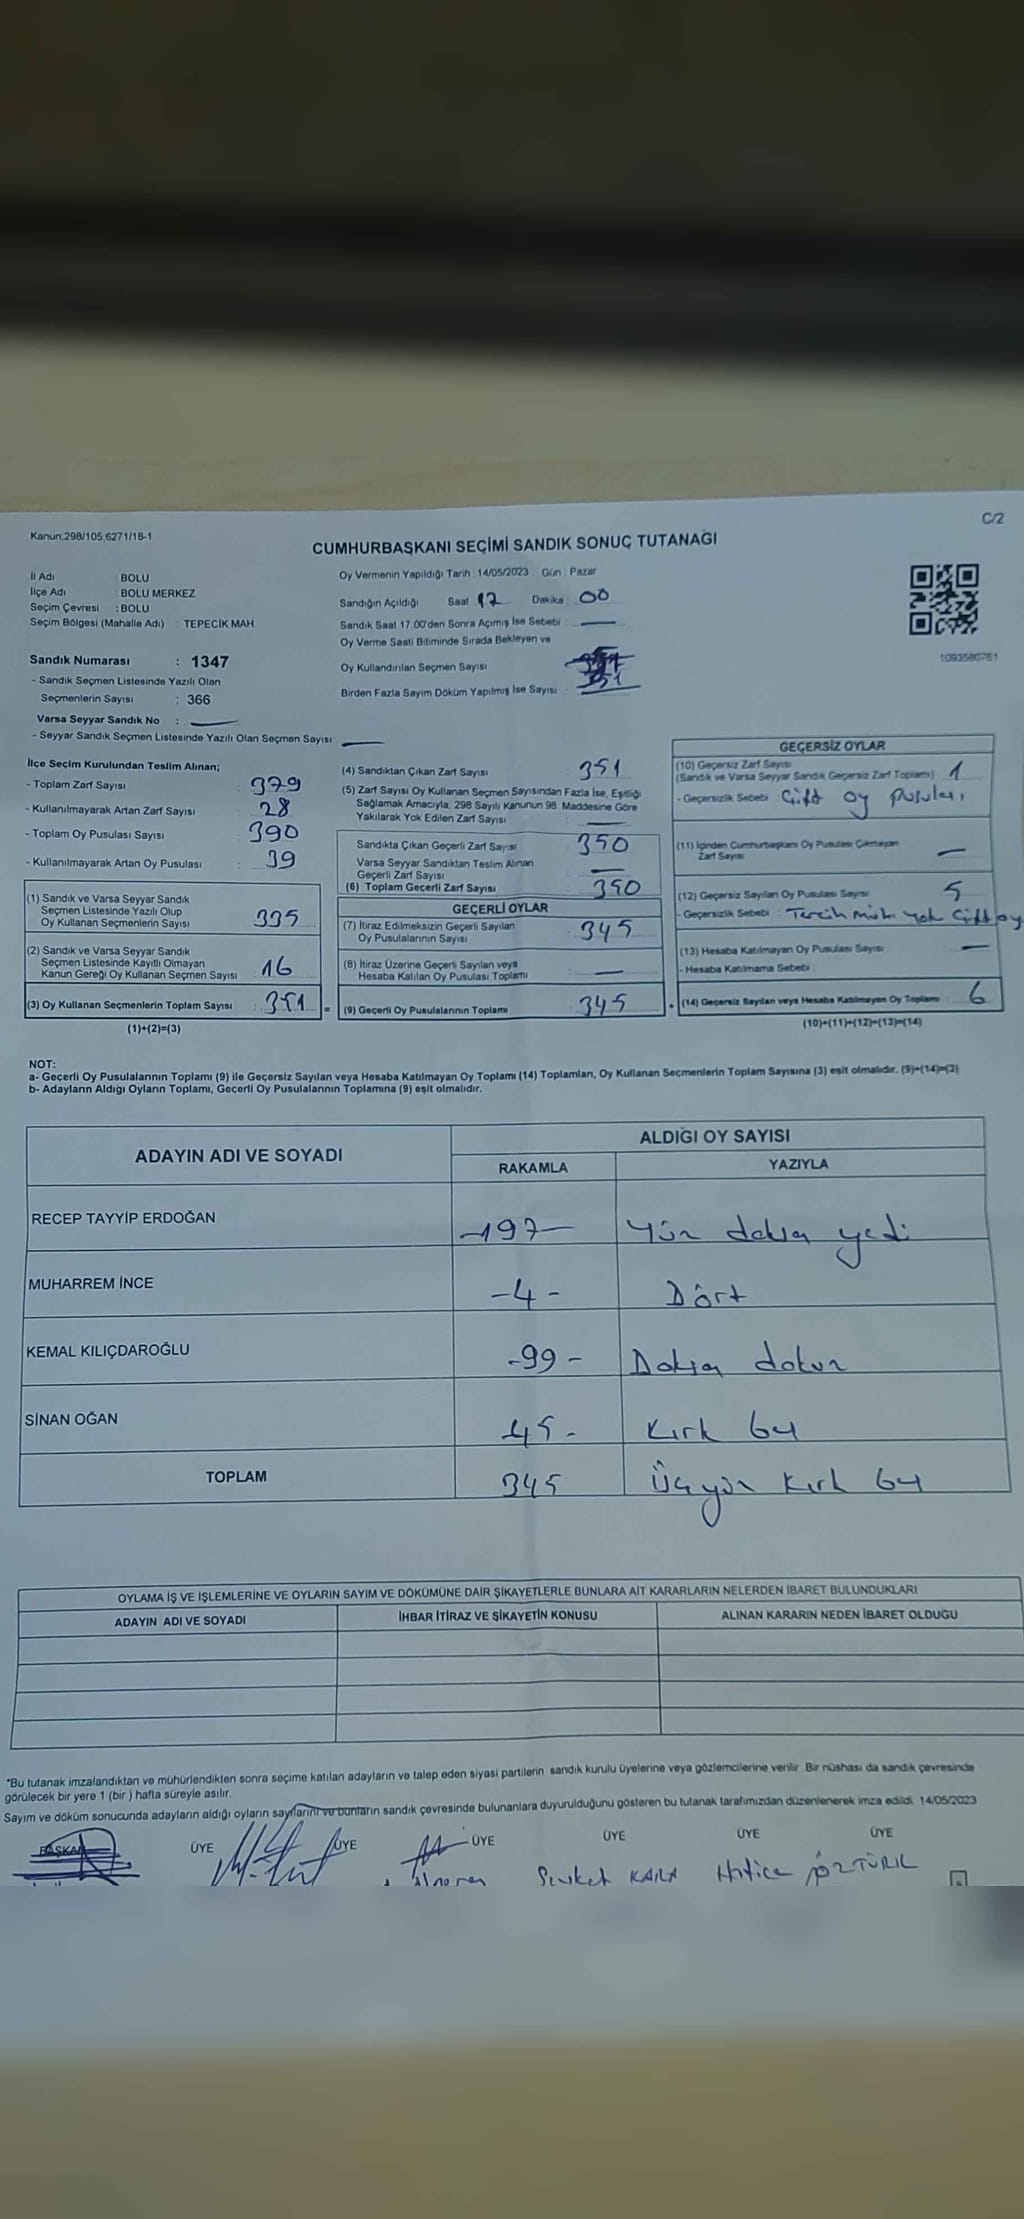 C/2
Kanun;298/105,6271/18-1
CUMHURBAŞKANI SEÇİMİ SANDIK SONUÇ TUTANAĞI
İl Adı : BOLU
İlçe Adı : BOLU MERKEZ
Seçim Çevresi : BOLU
Seçim Bölgesi (Mahalle Adı) : TEPECİK MAH
Sandık Numarası : 1347
- Sandık Seçmen Listesinde Yazılı Olan
Seçmenlerin Sayısı : 366
Varsa Seyyar Sandık No : —
- Seyyar Sandık Seçmen Listesinde Yazılı Olan Seçmen Sayısı: —
Oy Vermenin Yapıldığı Tarih : 14/05/2023 Gün : Pazar
Sandığın Açıldığı Saat 17 Dakika : 00
Sandık Saat 17.00'den Sonra Açımış İse Sebebi : —
Oy Verme Saati Bitiminde Sırada Bekleyen ve
Oy Kullandırılan Seçmen Sayısı
Birden Fazla Sayım Döküm Yapılmış İse Sayısı :
1093580761
İlçe Seçim Kurulundan Teslim Alınan;
- Toplam Zarf Sayısı : 379
- Kullanılmayarak Artan Zarf Sayısı : 28
- Toplam Oy Pusulası Sayısı : 390
- Kullanılmayarak Artan Oy Pusulası : 39
(1) Sandık ve Varsa Seyyar Sandık
Seçmen Listesinde Yazılı Olup
Oy Kullanan Seçmenlerin Sayısı : 335
(2) Sandık ve Varsa Seyyar Sandık
Seçmen Listesinde Kayıtlı Olmayan
Kanun Gereği Oy Kullanan Seçmen Sayısı : 16
(3) Oy Kullanan Seçmenlerin Toplam Sayısı : 351
(1)+(2)=(3)
(4) Sandıktan Çıkan Zarf Sayısı : 351
(5) Zarf Sayısı Oy Kullanan Seçmen Sayısından Fazla İse, Eşitliği
Sağlamak Amacıyla; 298 Sayılı Kanunun 98. Maddesine Göre
Yakılarak Yok Edilen Zarf Sayısı : —
Sandıkta Çıkan Geçerli Zarf Sayısı : 350
Varsa Seyyar Sandıktan Teslim Alınan
Geçerli Zarf Sayısı : —
(6) Toplam Geçerli Zarf Sayısı : 350
GEÇERLİ OYLAR
(7) İtiraz Edilmeksizin Geçerli Sayılan
Oy Pusulalarının Sayısı : 345
(8) İtiraz Üzerine Geçerli Sayılan veya
Hesaba Katılan Oy Pusulası Toplamı : —
= (9) Geçerli Oy Pusulalarının Toplamı : 345
GEÇERSİZ OYLAR
(10) Geçersiz Zarf Sayısı
(Sandık ve Varsa Seyyar Sandık Geçersiz Zarf Toplamı) : 1
- Geçersizlik Sebebi : Çift oy pusulası
(11) İçinden Cumhurbaşkanı Oy Pusulası Çıkmayan
Zarf Sayısı : —
(12) Geçersiz Sayılan Oy Pusulası Sayısı : 5
- Geçersizlik Sebebi : Tercih mührü yok Çift oy
(13) Hesaba Katılmayan Oy Pusulası Sayısı : —
- Hesaba Katılmama Sebebi :
+ (14) Geçersiz Sayılan veya Hesaba Katılmayan Oy Toplamı : 6
(10)+(11)+(12)+(13)=(14)
NOT:
a- Gecerli Oy Pusulalarının Toplamı (9) ile Geçersiz Sayılan veya Hesaba Katılmayan Oy Toplamı (14) Toplamları, Oy Kullanan Secmenlerin Toplam Sayısına (3) eşit olmalıdır. (9)+(14)=(3)
b- Adayların Aldığı Oyların Toplamı, Gecerli Oy Pusulalarının Toplamına (9) eşit olmalıdır.
ADAYIN ADI VE SOYADI
ALDIĞI OY SAYISI
RAKAMLA YAZIYLA
RECEP TAYYİP ERDOĞAN -197- Yüz doksan yedi
MUHARREM İNCE -4- Dört
KEMAL KILIÇDAROĞLU -99- Doksan dokuz
SİNAN OĞAN 45- Kırk beş
TOPLAM 345 Üçyüz kırk beş
OYLAMA İŞ VE İŞLEMLERİNE VE OYLARIN SAYIM VE DÖKÜMÜNE DAİR ŞİKAYETLERLE BUNLARA AİT KARARLARIN NELERDEN İBARET BULUNDUKLARI
ADAYIN ADI VE SOYADI İHBAR İTİRAZ VE ŞİKAYETİN KONUSU ALINAN KARARIN NEDEN İBARET OLDUĞU
*Bu tutanak imzalandıktan ve mühürlendikten sonra seçime katılan adayların ve talep eden siyasi partilerin sandık kurulu üyelerine veya gözlemcilerine verilir. Bir nüshası da sandık çevresinde
görülecek bir yere 1 (bir ) hafta süreyle asılır.
Sayım ve döküm sonucunda adayların aldığı oyların sayılarını ve bunların sandık çevresinde bulunanlara duyurulduğunu gösteren bu tutanak tarafımızdan düzenlenerek imza edildi. 14/05/2023
BAŞKAN ÜYE ÜYE ÜYE ÜYE ÜYE ÜYE
Şevket KARA Hatice ÖZTÜRK